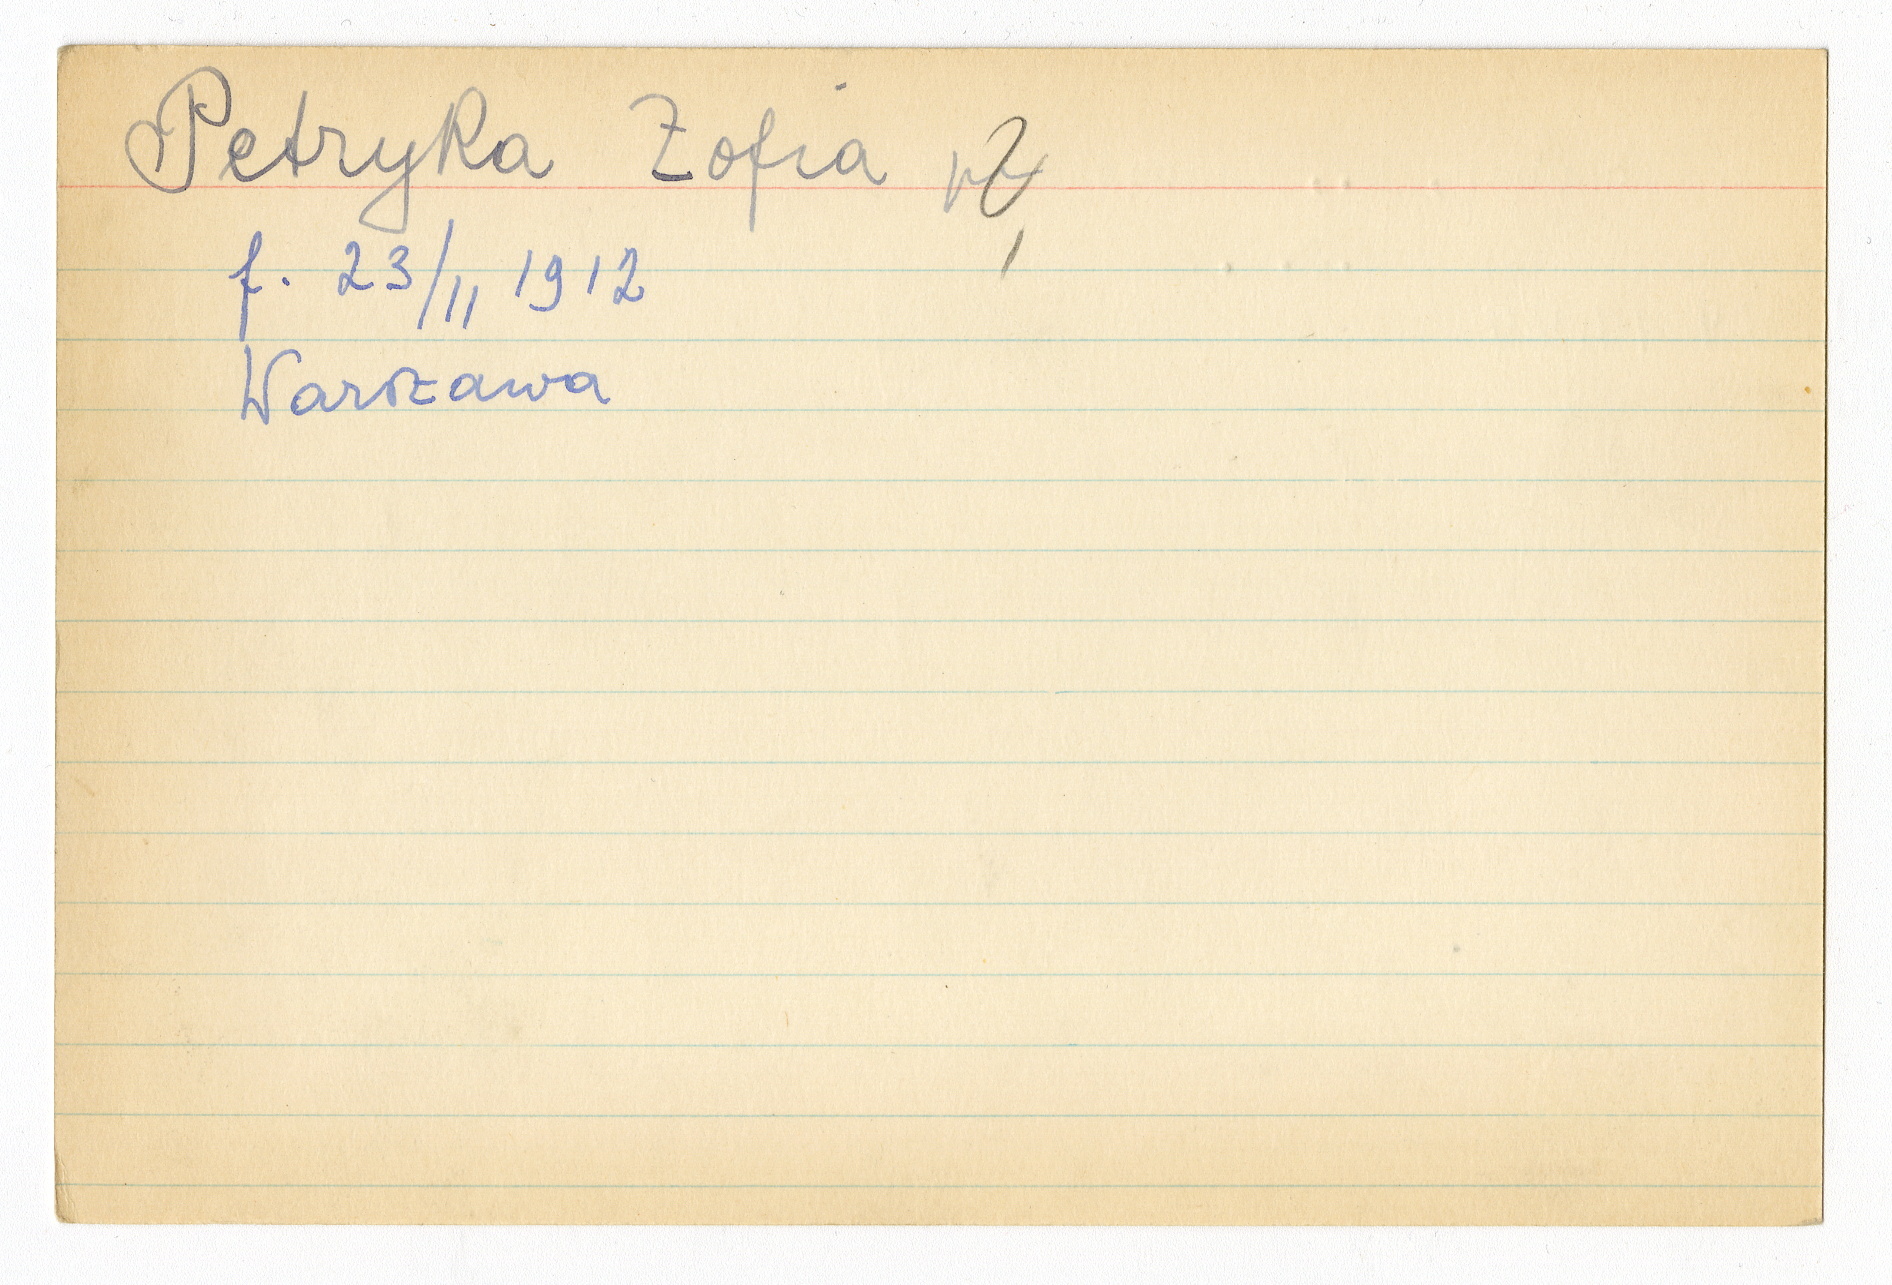 Petryka Zofia
f. 23/II 1912
Warszawa